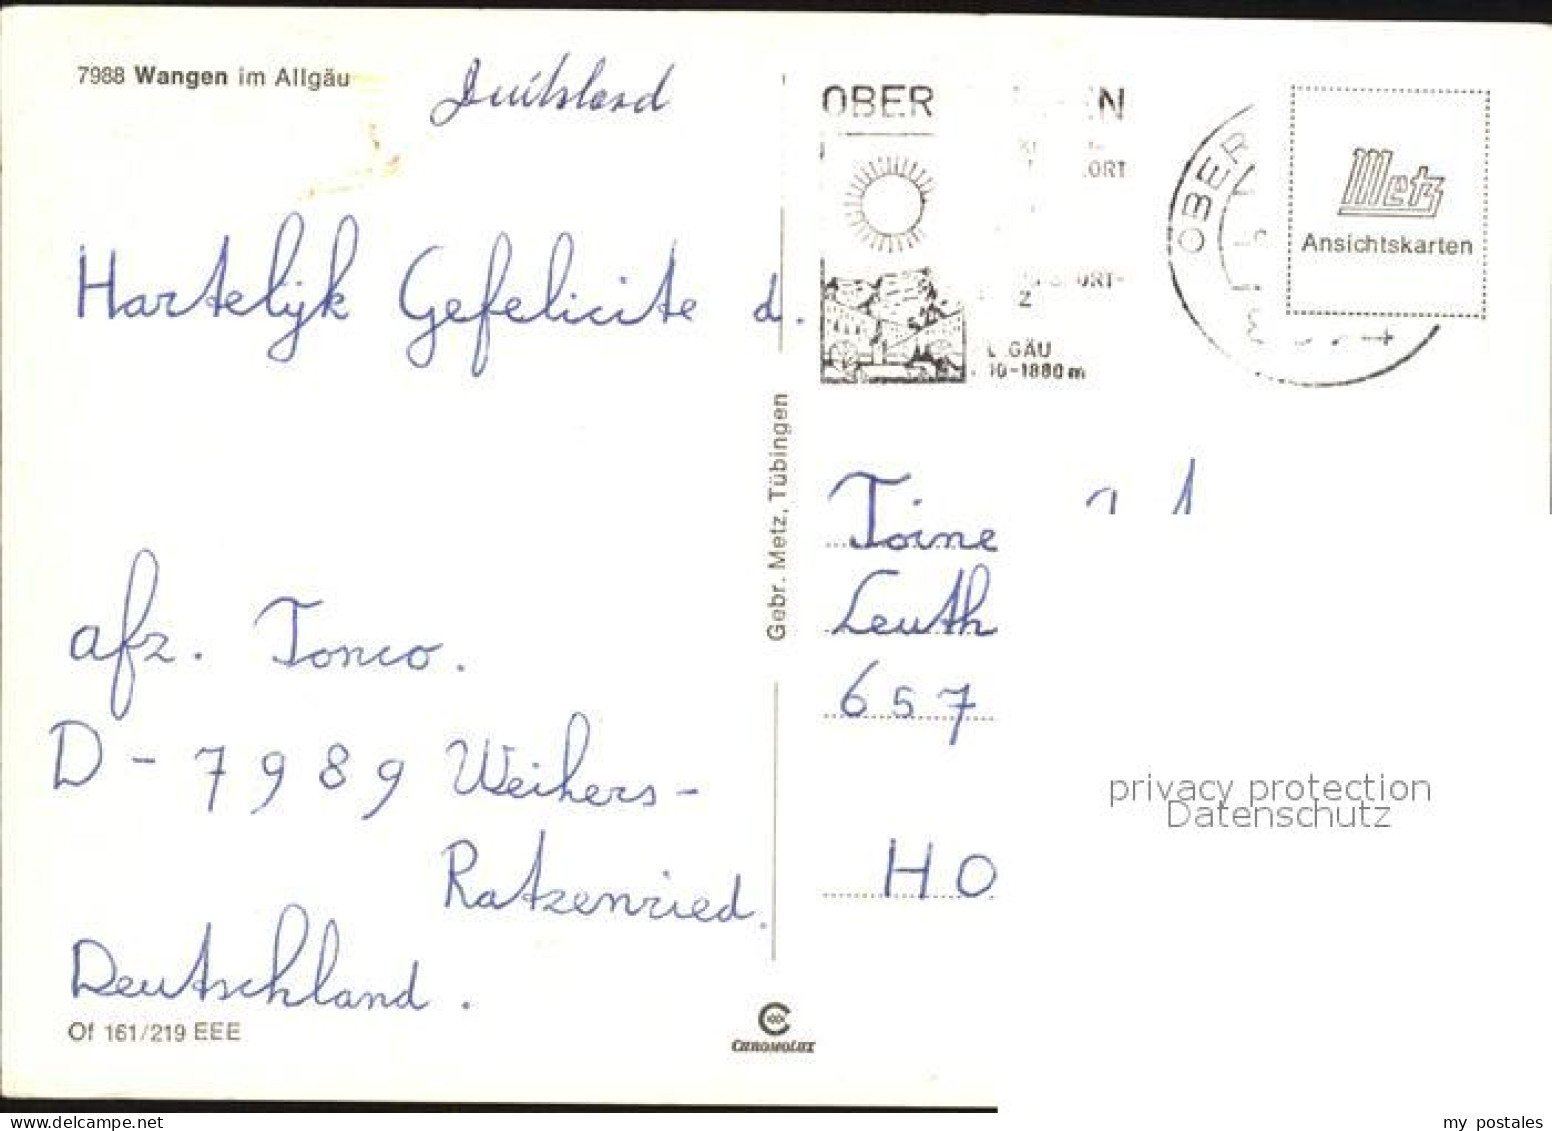 7988 Wangen im Allgäu
Duitsland
Hartelijk Gefelicite d.
afz. Tonco.
D-7989 Weihers-
Ratzenried.
Deutschland.
Of 161/219 EEE
Gebr. Metz, Tübingen
CHROMOLUX
OBER
N
ORT
ORT-
Z
GÄU
10-1880m
OBER
Metz
Ansichtskarten
Toine
Leuth
657
HO
privacy protection
Datenschutz
my postales